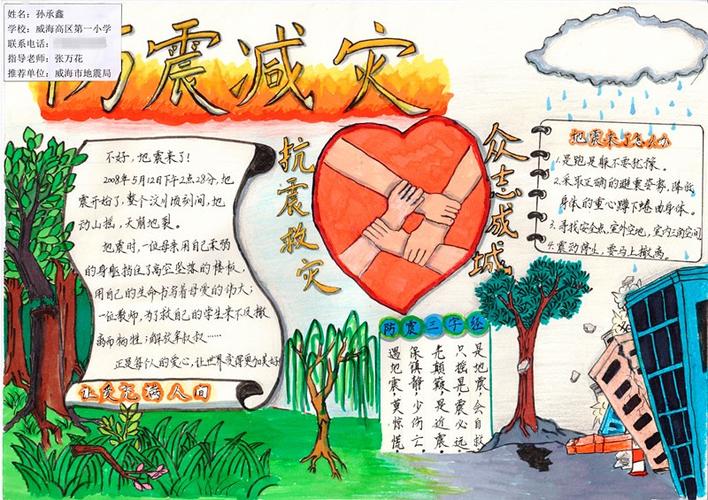 姓名：孙承鑫
学校：威海高区第一小学
联系电话：
指导老师：张万花
推荐单位：威海市地震局
防震减灾
抗震救灾
众志成城
不好，地震来了！
2008年5月12日下午2点28分，地
震开始了，整个汶川顷刻间，地
动山摇，天崩地裂。
地震时，一位母亲用自己柔弱
的身躯挡住了高空坠落的楼板，
用自己的生命书写着母爱的伟大；
一位教师，为了救自己的学生来不及撤
离而牺牲；解放军叔叔……
正是每个人的爱心，让世界变得更加美好！
让爱充满人间
地震来了怎么办
1.是跑是躲不要犹豫。
2.采取正确的避震姿势，降低
身体的重心蹲下蜷曲身体。
3.寻找安全点，室外空地，室内三角空间
4.震动停止，要马上撤离。
防震三字经
遇地震，莫惊慌。
保镇静，少伤亡。
先颠簸，是近震。
只摇晃，震必远。
是地震，会自救